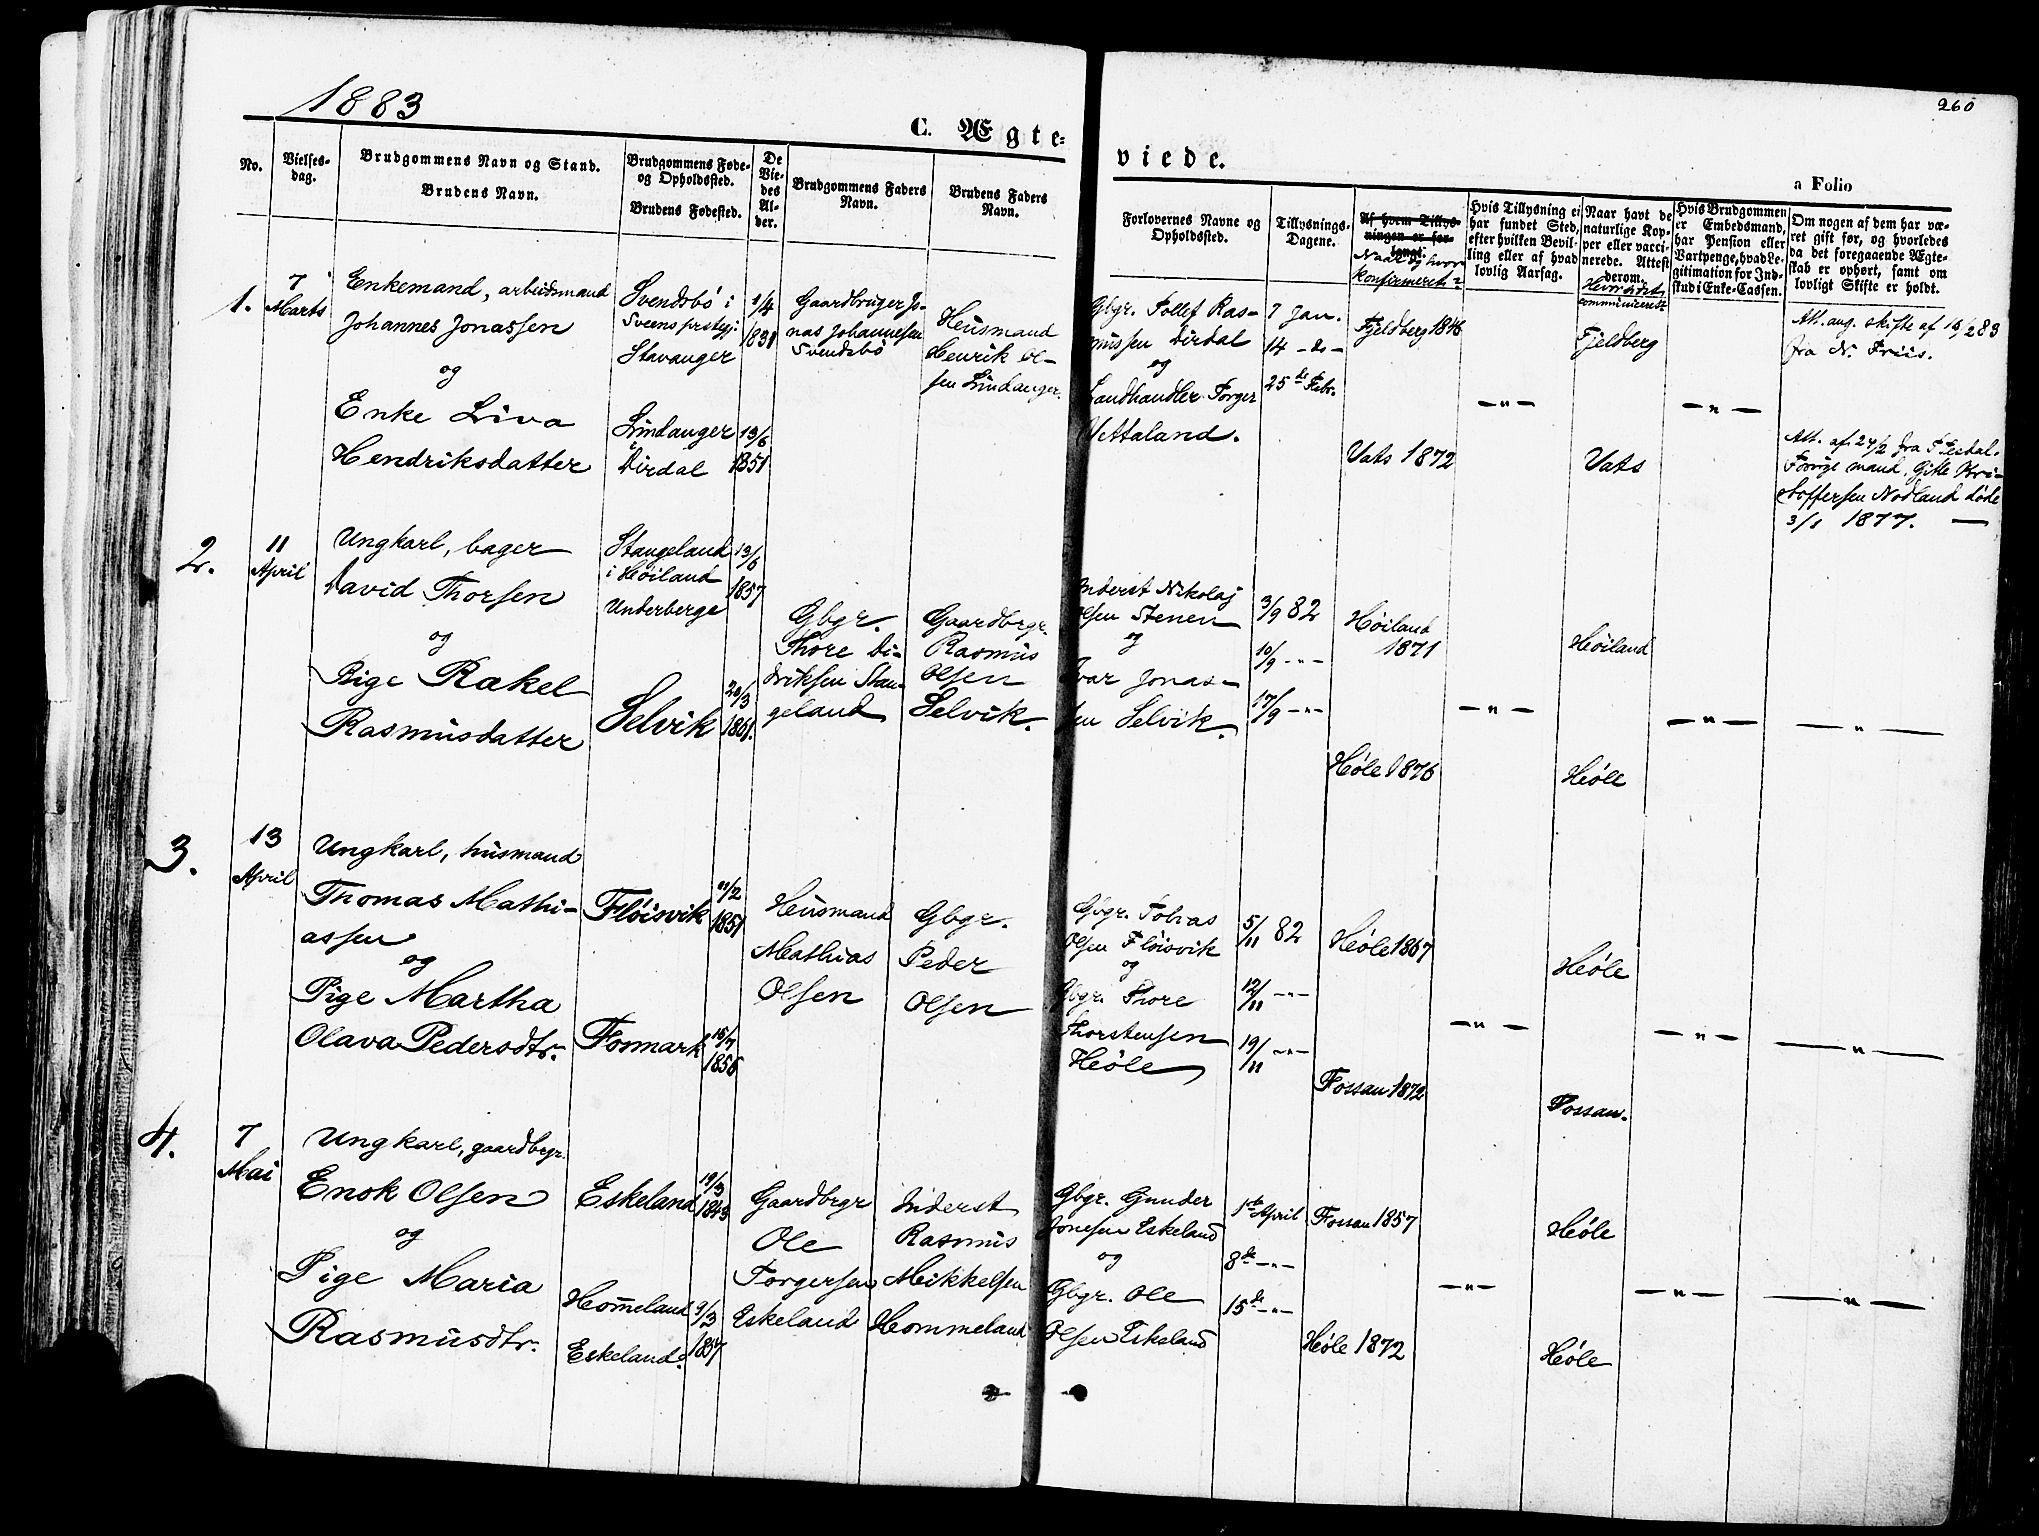 1883
260
C. Ægte-
viede.
a Folio
No.
Vielses-
dag.
Brudgommens Navn og Stand.
Brudens Navn.
Brudgommens Føde-
og Opholdssted.
Brudens Fødested.
De
Vie-
des
Al-
der.
Brudgommens Faders
Navn.
Brudens Faders
Navn.
Forlovernes Navne og
Opholdssted.
Tillysnings-
Dagene.
Af hvem Tillys-
ningen er for-
Naar og hvor
konfirmeret?
Hvis Tillysning ei
har fundet Sted,
efter hvilken Bevil-
ling eller af hvad
lovlig Aarsag.
Naar havt de
naturlige Kop-
per eller vacci-
nerede. Attest
derom.
Hvis Brudgommen
er Embedsmand,
har Pension eller
Vartpenge, hvad Le-
gitimation for Ind-
skud i Enke-Cassen.
Om nogen af dem har væ-
ret gift før, og hvorledes
da det foregaaende Ægte-
skab er ophørt, samt om
lovligt Skifte er holdt.
1.
7
Marts
Enkemand, arbeidsmand
Johannes Jonassen
og
Enke Liva
Hendriksdatter
Svendsbö i
Sveens prstgj:
Stavanger
Lindanger
Dirdal
1/4
1831
13/6
1851
Gaardbruger Jo-
nas Johannesen
Svendsbö
Husmand
Henrik Ol-
sen Lindanger.
Gbgr. Tollef Ras-
mussen Dirdal
og
Landhandler Torger
Vettaland.
7 Jan.
14 -do-
25de Febr.
Fjeldberg 1846
Vats 1872
— " —
Fjeldberg
Vats
— " —
Att. ang. skifte af 13/2 83
fra N. Friis.
Att. af 24/2 fra Tesdal.
Forrige mand, Gitle Kri-
stoffersen Nodland döde
3/1 1877. —
2.
11
April
Ungkarl, bager
David Thorsen
og
Pige Rakel
Rasmusdatter
Stangeland
i Høiland
Underberge
Selvik
13/6
1857
20/3
1861.
Gbgr.
Thore Di-
driksen Stan-
geland
Gaardbrgr.
Rasmus
Olsen
Selvik.
Inderst Nikolaj
Olsen Stenen
og
Ivar Jonas-
sen Selvik.
3/9 82
10/9 -"-
17/9 -"-
Høiland
1871
Höle 1876
— " —
Høiland
Höle
— " —
— " —
3.
13
April
Ungkarl, husmand
Thomas Mathi-
assen
og
Pige Martha
Olava Pedersdtr.
Flöisvik
Fosmark
1851
15/7
1856
Husmand
Mathias
Olsen
Gbgr.
Peder
Olsen
Gbgr. Tobias
Olsen Flöisvik
og
Gbgr. Thore
Thorstensen
Höle
5/11 82
12/11 -"-
19/11 -"-
Höle 1867
Fossan 1872
— " —
Höle
Fossan.
— " —
— " —
4.
7
Mai
Ungkarl, gaardbrgr.
Enok Olsen
og
Pige Maria
Rasmusdtr.
Eskeland
Hom̅eland
Eskeland.
19/3
1843
9/3
1857
Gaardbrgr
Ole
Torgersen
Eskeland
Inderst
Rasmus
Mikkelsen
Hommeland
Gbgr. Gunder
Jonesen Eskeland
og
Gbgr. Ole
Olsen Eskeland
1ste April
8de -"-
15de -"-
Fossan 1857
Höle 1872
— " —
Höle
Höle
— " —
— " —